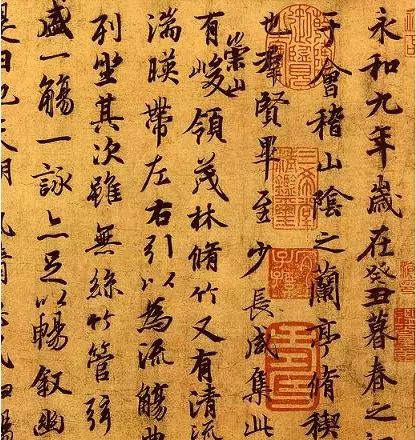 永和九年歲在癸丑暮春之
于會稽山陰之蘭亭脩稧
也羣賢畢至少長咸集此
有崇山峻領茂林脩竹又有清流
湍暎帶左右引以為流觴曲
列坐其次雖無絲竹管弦
盛一觴一詠亦足以暢叙幽